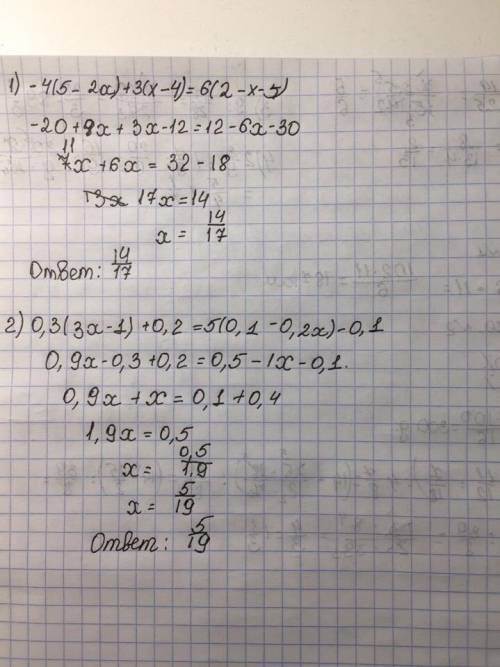 1) -4(5 - 2x)+3(x-4)=6(2-x-5)
-20+8x+3x-12=12-6x-30
11
7x+6x = 32-18
13x 17x=14
x = 14/17
Ответ: 14/17
2) 0,3(3x-1)+0,2=5(0,1-0,2x)-0,1
0,9x-0,3+0,2=0,5-1x-0,1.
0,9x+x=0,1+0,4
1,9x=0,5
x= 0,5/1,9
x= 5/19
Ответ: 5/19